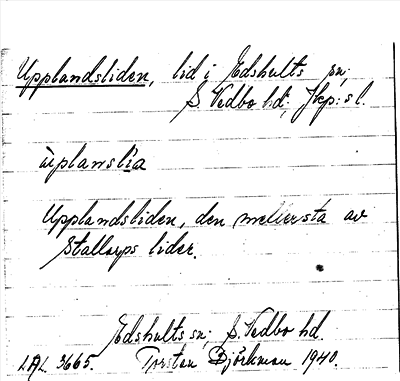 Upplandsliden, lid i Edshults sn;
S. Vedbo hd; Jkp:s l.
ùplanslia
Upplandsliden, den mellersta av
Stallarps lider.
Edshults sn; S. Vedbo hd.
LAL. 3665. Torsten Björkman 1940.